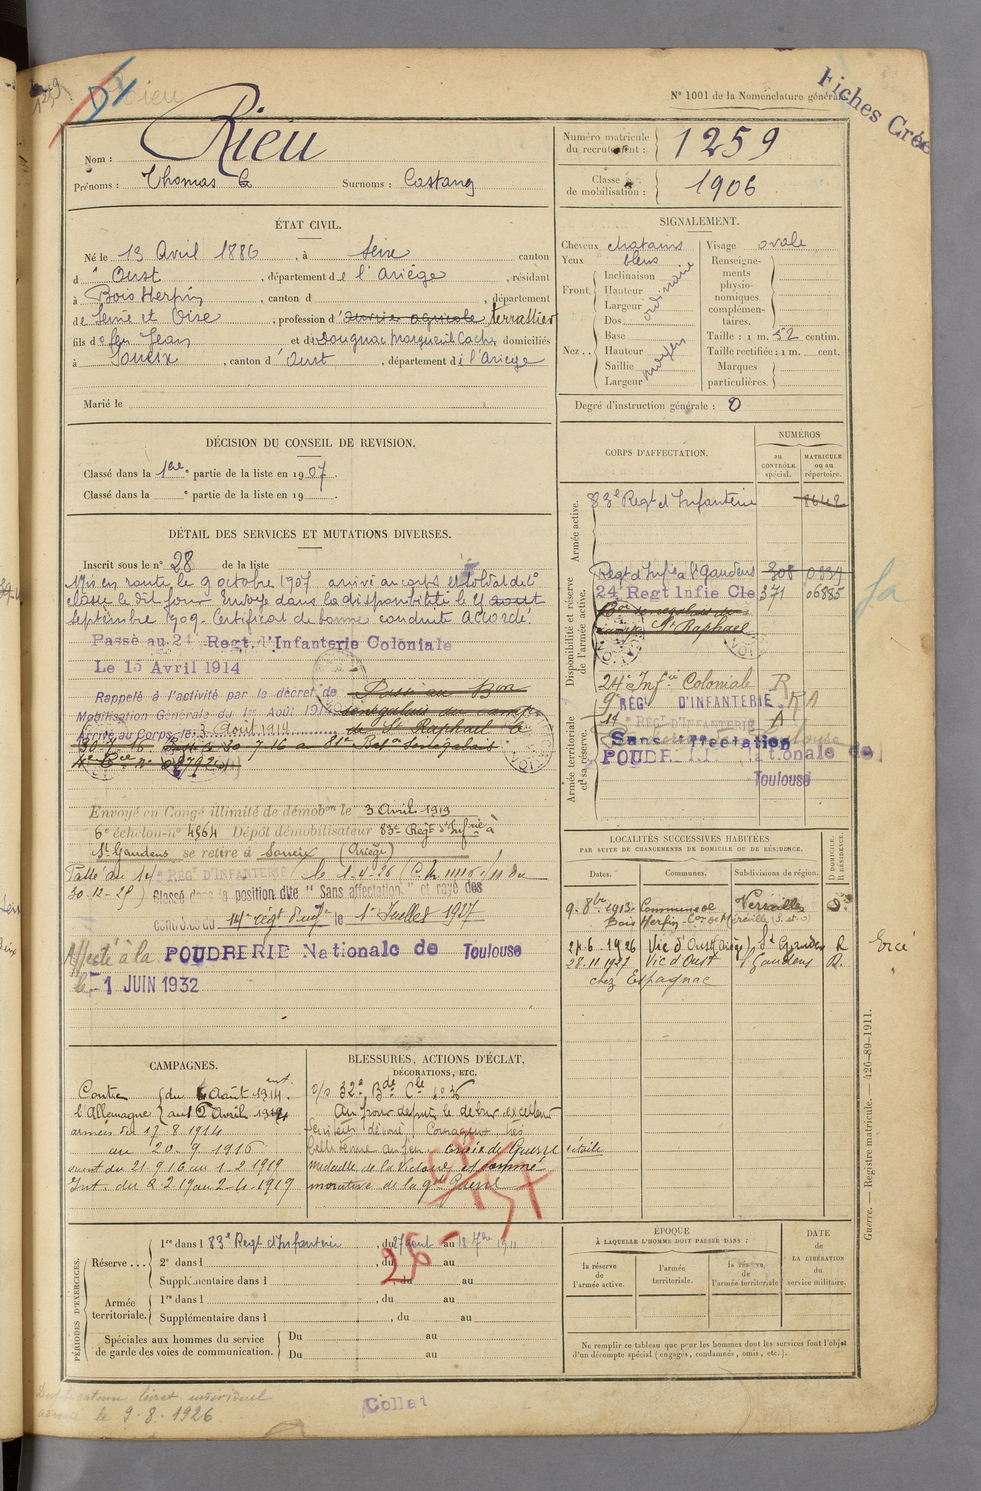 N° 1001 de la Nomenclature générale
Fiches Créé
Rieu
Nom :
Prénoms : Thomas
Surnoms : Castang
Numéro matricule du recrutement : 1259
Classe de mobilisation : 1906
ÉTAT CIVIL.
Né le 13 Avril 1886, à Seix canton
d' Oust, département de l'Ariège, résidant
à Bois Herpin, canton d , département
de Seine et Oise, profession d' ouvrier agricole terrassier
fils de feu Jean et de Dougnac Marguerite domiciliés
à Soueix, canton d' Oust, département de l'Ariège
Marié le
SIGNALEMENT.
Cheveux chatains
Yeux bleus
Front. Inclinaison
Hauteur ordinaire
Largeur
Nez Dos
Base
Hauteur moyen
Saillie
Largeur
Visage ovale
Renseignements physionomiques complémentaires.
Taille : 1 m. 52 centim.
Taille rectifiée : 1 m. cent.
Marques particulières.
Degré d'instruction générale : 0
DÉCISION DU CONSEIL DE REVISION.
Classé dans la 1ère partie de la liste en 1907.
Classé dans la e partie de la liste en 19 .
DÉTAIL DES SERVICES ET MUTATIONS DIVERSES.
Inscrit sous le n° 28 de la liste
Mis en route le 9 octobre 1907 arrivé au corps et soldat de 2e
classe le dit jour. Envoyé dans la disponibilité le 4 aout
Septembre 1909. Certificat de bonne conduite Accordé.
Passé au 24 Regt. d'Infanterie Coloniale
Le 15 Avril 1914
Rappelé à l'activité par le décret de
Mobilisation Générale du 1er Août 1914
Arrivé au Corps le 3 Août 1914
Passé au Bon
sénégalais du camp
de St Raphael
Envoyé en Congé illimité de démobon le 3 Avril 1919
6e échelon-n° 4564 Dépôt démobilisateur 83e Regt d'Infrie à
St Gaudens se retire à Soueix (Ariège)
Passé au 14e RÉGt D'INFANTERIE le 1-4-26
30-12-25) Classé dans la position dite "Sans affectation" et rayé des
contrôles du 14e régt d'inf le 1er Juillet 1927
Affecté à la POUDRERIE Nationale de Toulouse
le -1 JUIN 1932
CORPS D'AFFECTATION.
NUMÉROS
au CONTRÔLE spécial.
MATRICULE ou au répertoire.
Armée active.
83e Regt d'Infanterie 8642
Disponibilité et réserve de l'armée active.
Regt d'Infie à St Gaudens 308
24e Regt Infie Cle 371 06885
Bon sénégalais du
camp St Raphael
24e Infie Coloniale R
Armée territoriale et sa réserve.
9e RÉGt D'INFANTERIE RA
14e RÉGt D'INFANTERIE A
Sans affectation
POUDRERIE Nationale de
Toulouse
LOCALITÉS SUCCESSIVES HABITÉES
PAR SUITE DE CHANGEMENTS DE DOMICILE OU DE RÉSIDENCE.
Dates.
Communes.
Subdivisions de région.
D DOMICILE. R RÉSIDENCE.
9. 8bre 1913. Commune de Versailles D.
Bois Herpin Con de Méréville (S. et O)
24.6.1926 Vic d'Oust (Ariège) St Gaudens R
28.11.1927 Vic d'Oust St Gaudens R.
chez Espagnac
Ercé
CAMPAGNES.
Contre l'Allemagne du 4 Août 1914.
au 2 Avril 1919
armées du 17-8-1914
au 20. 9. 1916
du 21 9 16 au 1-2 1919
Int. du 2 2 19 au 2-4-1919
BLESSURES, ACTIONS D'ÉCLAT, DÉCORATIONS, ETC.
o/o 32e Bde Cle n° 36
Au front depuis le début, excellent
dévoué. Courageux, très
belle tenue au feu. Croix de Guerre étoile
médaille de la Victoire et commé-
morative de la gde Guerre
PÉRIODES D'EXERCICES.
Réserve ...
1re dans l 83e Regt d'Infanterie, du 27 août au 18 7bre 1911
2e dans l , du au
Supplémentaire dans l , du au
Armée territoriale.
1re dans l , du au
Supplémentaire dans l , du au
Spéciales aux hommes du service de garde des voies de communication.
Du au
Du au
ÉPOQUE
À LAQUELLE L'HOMME DOIT PASSER DANS :
la réserve de l'armée active.
l'armée territoriale.
la réserve de l'armée territoriale
DATE de LA LIBÉRATION du service militaire.
Ne remplir ce tableau que pour les hommes dont les services font l'objet
d'un décompte spécial (engagés, condamnés, omis, etc.).
Guerre. — Registre matricule. — 426-89-1911.
livret individuel
le 9.8.1926
Collat